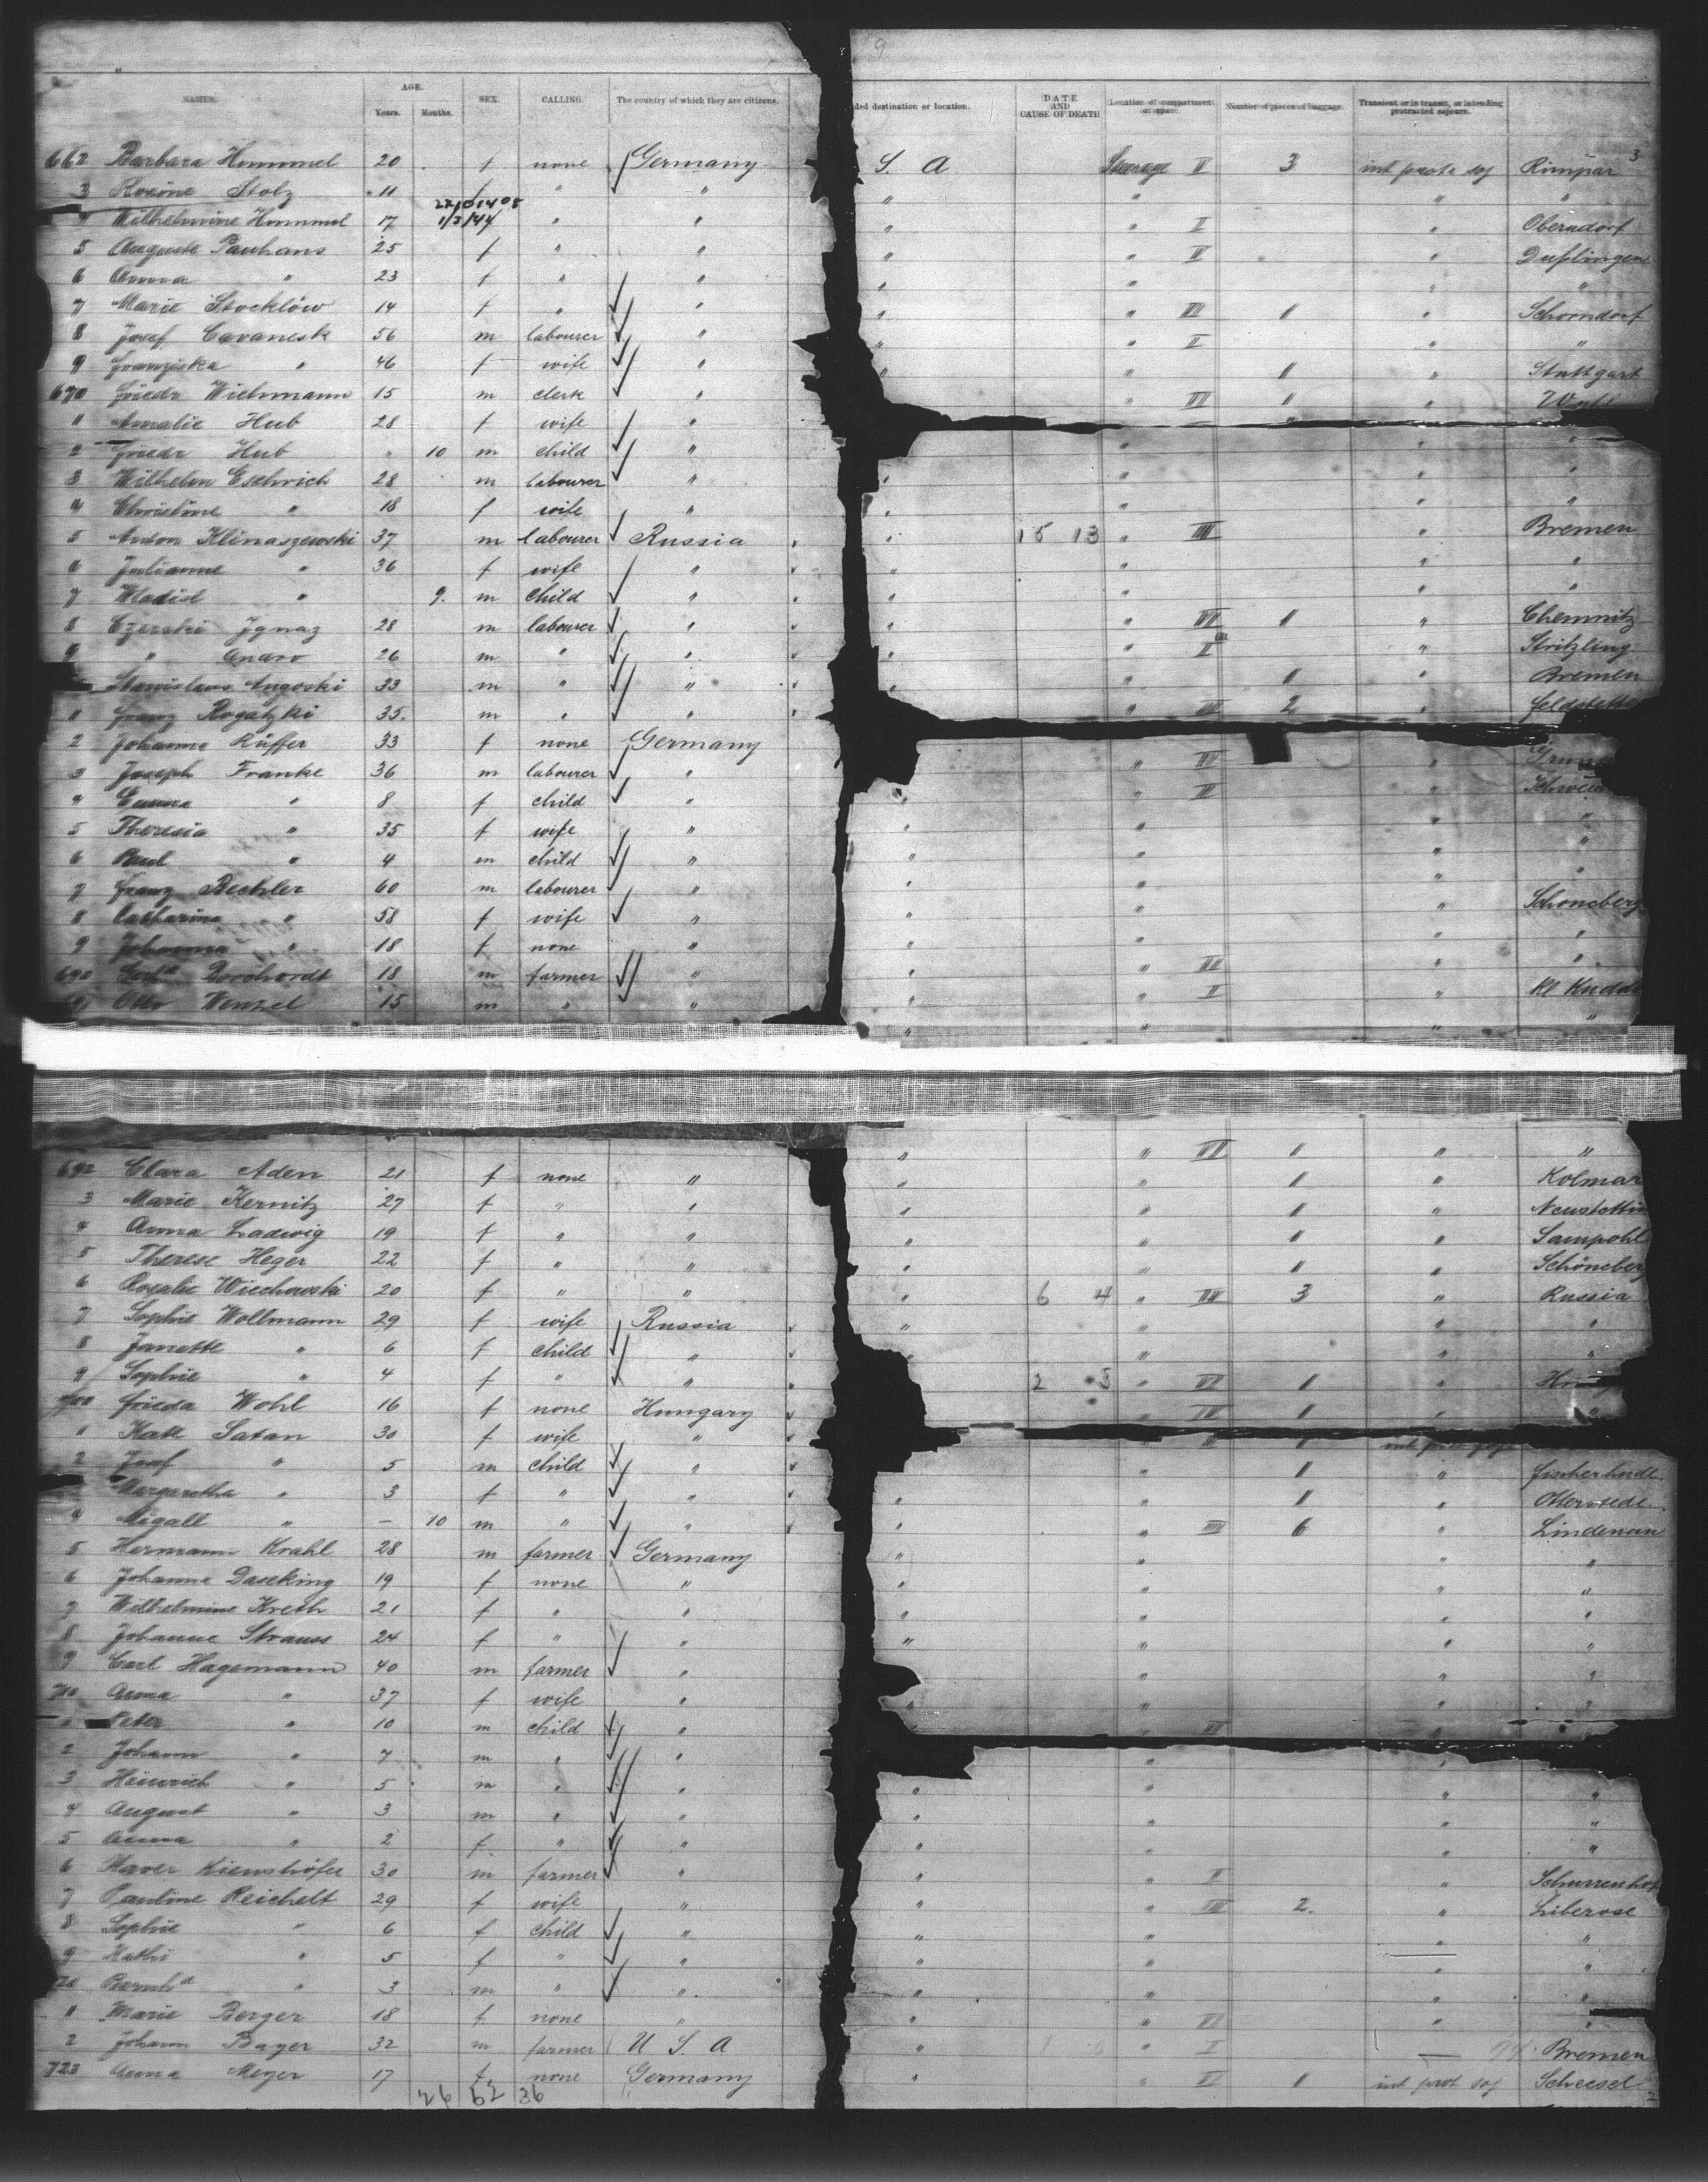 NAMES. AGE. Years. Months. SEX. CALLING. The country of which they are citizens.
662 Barbara Hummel 20 f none Germany
3 Rosine Stolz 11 f " "
22/0 1408
4 Wilhelmine Hummel 17 1/3/44 " "
5 Auguste Pauhans 25 f " "
6 Anna " 23 f " "
7 Marie Stocklöw 14 f " "
8 Josef Cavanesk 56 m labourer "
9 Franziska " 46 f wife "
670 Friedr Wiehmann 15 m clerk "
1 Amalie Hub 28 f wife "
2 Friedr Hub " 10 m child "
3 Wilhelm Eschrich 28 m labourer "
4 Christine " 18 f wife "
5 Anton Klinaszewski 37 m labourer Russia
6 Julianne " 36 f wife "
7 Wladisl " 9. m child "
8 Czerski Ignaz 28 m labourer "
9 " Andro 26 m " "
Stanislaus Angoski 33 m " "
1 Franz Rogatzki 35. m " "
2 Johanna Küffer 33 f none Germany
3 Joseph Franke 36 m labourer "
4 Emma " 8 f child "
5 Theresia " 35 f wife "
6 Paul " 4 m child "
7 Franz Bechler 60 m labourer "
8 Catharina " 58 f wife "
9 Johanna " 18 f none "
690 Borchardt 18 m farmer "
Otto Wenzel 15 m " "
692 Clara Aden 21 f none "
3 Marie Kernitz 27 f " "
4 Anna Ladwig 19 f " "
5 Therese Heger 22 f " "
6 Rosalie Wiechowski 20 f " "
7 Sophie Wollmann 29 f wife Russia
8 Janette " 6 f child "
9 Sophie " 4 f " "
700 Frieda Wohl 16 f none Hungary
1 Kati Satan 30 f wife "
2 Josef " 5 m child "
Margaretha " 3 f " "
4 Migall " – 10 m " "
5 Hermann Krahl 28 m farmer Germany
6 Johanna Daseking 19 f none "
7 Wilhelmine Kreth 21 f " "
8 Johanne Strauss 24 f " "
9 Carl Hagemann 40 m farmer "
710 Anna " 37 f wife "
Peter " 10 m child "
2 Johann " 7 m " "
3 Heinrich " 5 m " "
4 August " 3 m " "
5 Anna " 2 f " "
6 Xaver Kienshöfer 30 m farmer "
7 Pauline Reichelt 29 f wife "
8 Sophie " 6 f child "
9 Kathi " 5 f " "
720 Bernhd " 3 m " "
1 Marie Berger 18 f none "
2 Johann Bayer 32 m farmer U S A
723 Anna Meyer 17 f. none Germany
26 52 36
9
ded destination or location. DATE AND CAUSE OF DEATH Location of compartment or space. Number of pieces of baggage. Transient or in transit, or intending protracted sojourn.
S. A Steerage II 3 int prota soj Rimpar 3
" " " "
" " II " Oberndorf
" " III " Dußlingen
" " " "
" " III 1 " Schorndorf
" " II " "
" " 1 " Stuttgart
" III 1 "
" " "
" " "
" " "
" 15 13 " IIII " Bremen
" " " "
" " " "
" " III 1 " Chemnitz
" " II " Stritzling
" " 1 " Bremen
" III 2 "
" III "
" " III "
" " " "
" " " "
" " " "
" " " Schoneberg
" " " "
" " III " "
" " II " Kl Kudde
" " "
" " III 1 " "
" " 1 " Kolmar
" " 1 " Neustettin
" " 1 " Sampohl
" " 1 " Schöneberg
" 6 4 " III 3 " Russia
" " " "
" " "
2 3 " III 1 "
" III 1 " "
" 1 " Fischerhude.
" " 1 " Ottersede.
" " IIII 6 " Lindenau
" " " "
" " " "
" " " "
" " " "
" " "
" " " "
" III "
" "
" " " "
" " " "
" " " "
" " II " Schurrenhof
" " III 2. " Liberose
" " " "
" " " "
" " " "
" " III " "
" " I — Bremen
" " III 1 int prot soj Scheesel
2